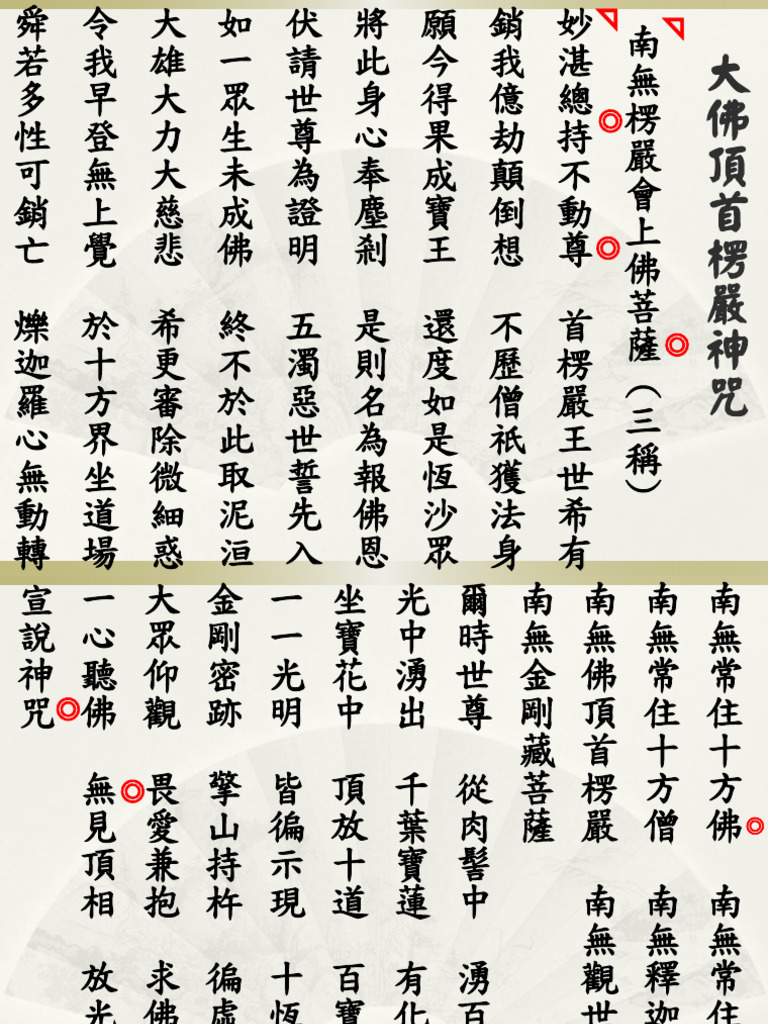 大佛頂首楞嚴神咒
南無楞嚴會上佛菩薩（三稱）
妙湛總持不動尊 首楞嚴王世希有
銷我億劫顛倒想 不歷僧祇獲法身
願今得果成寶王 還度如是恆沙眾
將此身心奉塵剎 是則名為報佛恩
伏請世尊為證明 五濁惡世誓先入
如一眾生未成佛 終不於此取泥洹
大雄大力大慈悲 希更審除微細惑
令我早登無上覺 於十方界坐道場
舜若多性可銷亡 爍迦羅心無動轉
南無常住十方佛 南無常住
南無常住十方僧 南無釋迦
南無佛頂首楞嚴 南無觀世
南無金剛藏菩薩
爾時世尊 從肉髻中 湧百
光中湧出 千葉寶蓮 有化
坐寶花中 頂放十道 百寶
一一光明 皆徧示現 十恆
金剛密跡 擎山持杵 徧虛
大眾仰觀 畏愛兼抱 求佛
一心聽佛 無見頂相 放光
宣說神咒